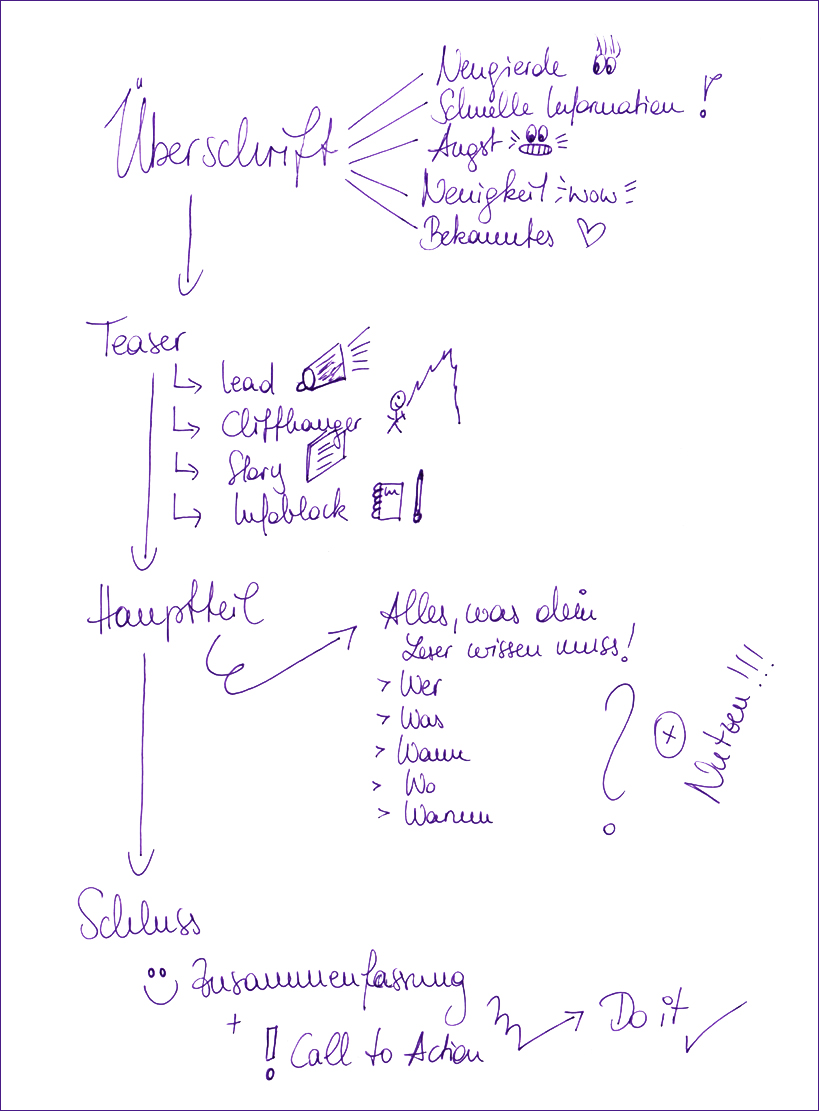 Überschrift
Neugierde
Schnelle Information !
Angst
Neuigkeit wow
Bekanntes
Teaser
Lead
Cliffhanger
Story
Infoblock
Hauptteil
Alles, was dein
Leser wissen muss!
> Wer
> Was
> Wann
> Wo
> Warum
?
+
Nutzen!!!
Schluss
Zusammenfassung
+
! Call to Action
Do it